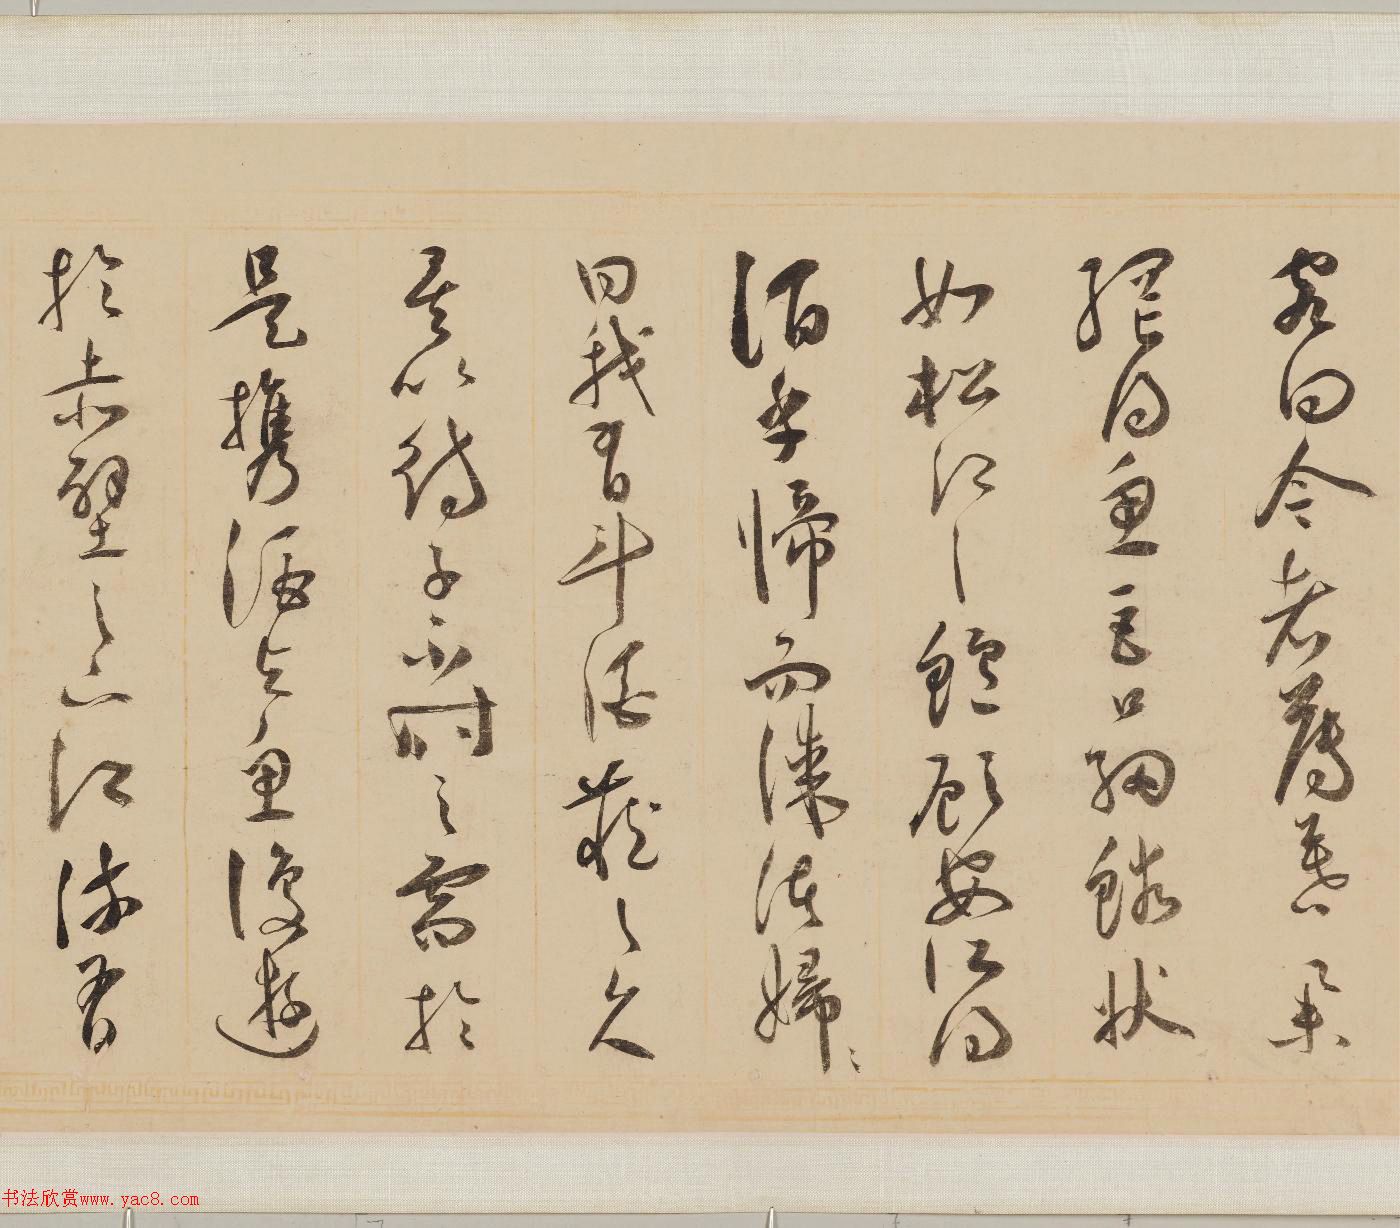 客曰今者薄暮舉
網得魚巨口細鱗狀
如松江之鱸顧安所得
酒乎歸而謀諸婦婦
曰我有斗酒藏之久
矣以待子不時之需於
是攜酒與魚復遊
於赤壁之下江流有
书法欣赏www.yac8.com